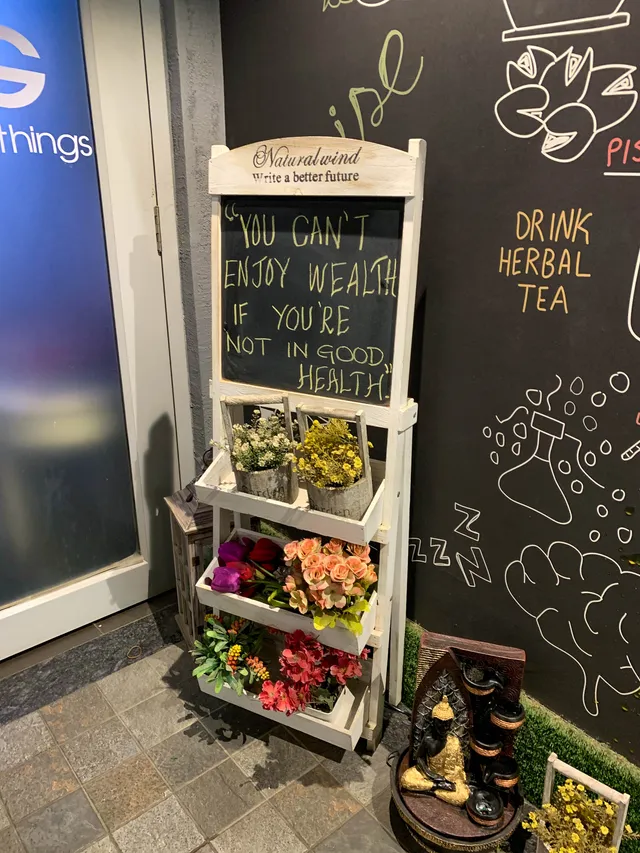 G
things
Naturalwind
Write a better future
"YOU CAN'T
ENJOY WEALTH
IF YOU'RE
NOT IN GOOD
HEALTH"
PIS
DRINK
HERBAL
TEA
ZZZZ